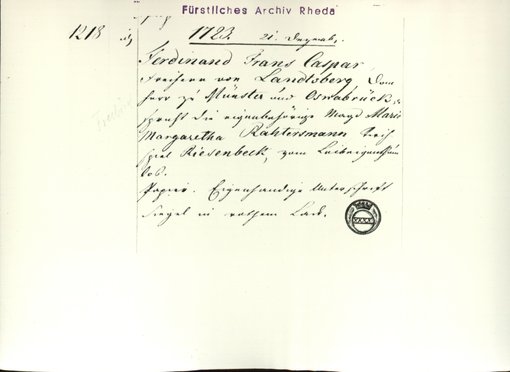 Fürstliches Archiv Rheda
1218
1723. 21. Dezemb.
Ferdinand Franz Caspar,
Freiherr von Landtsberg Dom
herr zu Münster und Osnabrück,
spricht die eigenbehörige Magd Maria
Margaretha Rahtersmann Kirch
spiel Riesenbeck, vom Leibeigenthum
los.
Papier. Eigenhändige Unterschrift
Siegel in rothem Lack.